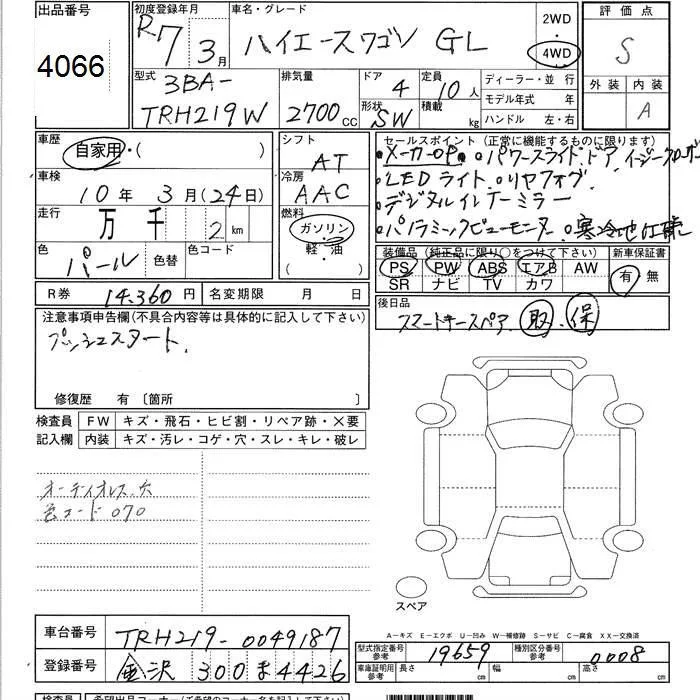 出品番号 初度登録年月 車名・グレード 2WD 評価点
4066 R7 3月 ハイエースワゴン GL 4WD S
型式 排気量 ドア 定員 ディーラー・並 行 外装 内装
3BA- TRH219W 2700cc 4 10人 モデル年式 年 A
形状 SW 積載 kg ハンドル 左・右
車歴 シフト セールスポイント (正常に機能するものに限ります)
自家用・( ) AT ・メーカーOP ・パワースライドドア イージークローザー
車検 冷房 ・LEDライト ・リヤフォグ
10年 3月(24日) AAC ・デジタルインナーミラー
走行 燃料 ・パノラミックビューモニター ・寒冷地仕様
万 千 2km ガソリン
色 色替 色コード 軽・油 装備品 (純正品に限り○をつけて下さい) 新車保証書
パール ( ) PS PW ABS エアB AW 有 無
SR ナビ TV カワ
R券 14,360円 名変期限 月 日 後日品
注意事項申告欄(不具合内容等は具体的に記入して下さい) スマートキースペア 取・保
プッシュスタート
修復歴 有 〔箇所 〕
検査員 FW キズ・飛石・ヒビ割・リペア跡・×要
記入欄 内装 キズ・汚レ・コゲ・穴・スレ・キレ・破レ
オーディオレス、穴
色コード 070
スペア
A―キズ E―エクボ U―凹み W―補修跡 S―サビ C―腐食 XX―交換済
車台番号 TRH219-0049187
型式指定番号 参考 19659 種別区分番号 参考 0008
登録番号 金沢 300 ま 4426
車庫証明用 参考 長さ cm 幅 cm 高さ cm
検査員 希望出品コーナー(ご希望のコーナー名を記入して下さい)